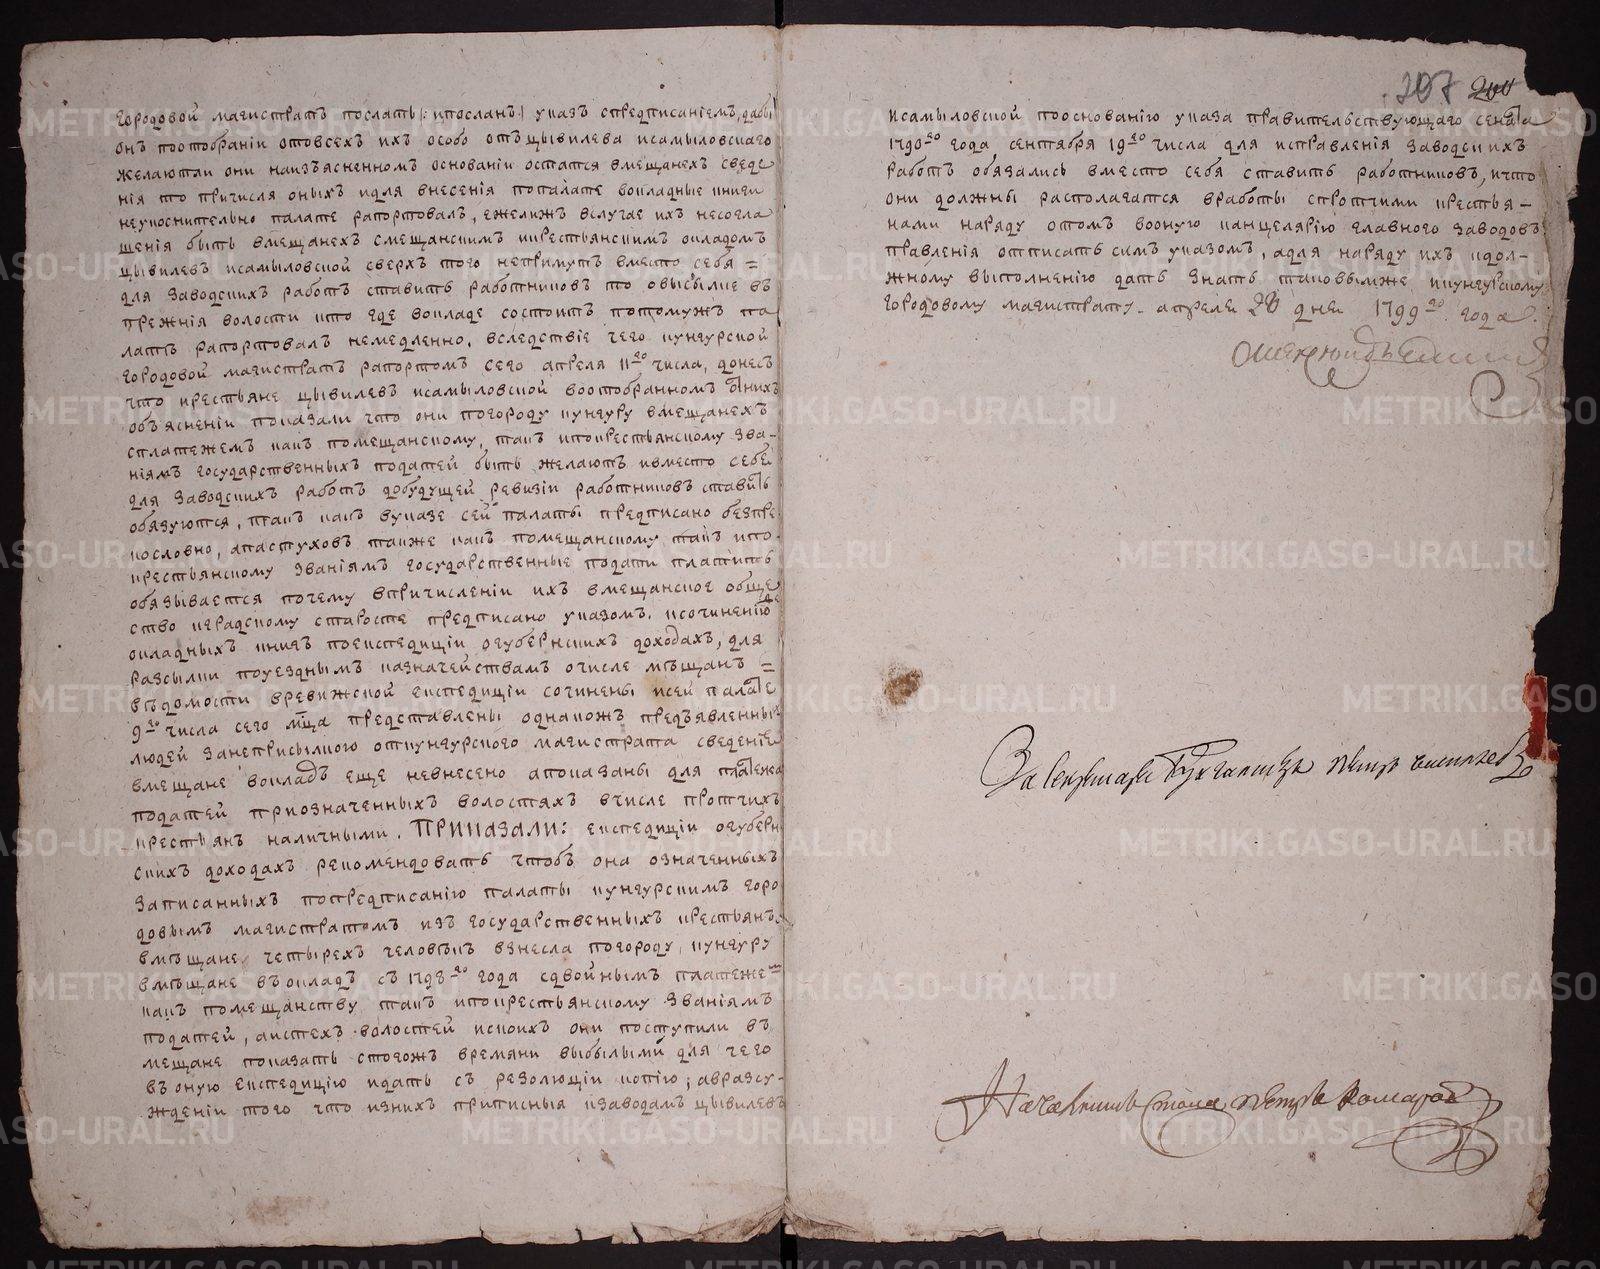 городовой магистратъ послать |: ипосланъ :| указъ спредписаніемъ, дабы
онъ поотобраніи отовсехъ ихъ особо отъ цывилева исамыловскаго
желаютли они наизъясненномъ основаніи остатся вмещанехъ сведе
нія то причисля оныхъ идля внесенія попалате вокладные книги
неупоснительно палате рапортовалъ, ежелижъ вслучае ихъ несогла
шенія быть вмещанехъ смещанскимъ икрестьянскимъ окладомъ
цывилевъ исамыловской сверхъ того непримутъ вместо себя =
для заводскихъ работъ ставить работниковъ то овысылке въ
прежнія волости кто где вокладе состоитъ потомужъ па
латъ рапортовалъ немедленно. вследствіе чего кунгурской
городовой магистратъ рапортомъ сего апреля 11го числа, донесъ
что крестьяне цывилевъ исамыловской воотобранномъ отнихъ
объясненіи показали что они погороду кунгуру вмещанехъ
сплатежемъ какъ помещанскому, такъ ипокрестьянскому зва-
ніямъ государственныхъ податей быть желаютъ ивместо себя
для заводскихъ работъ добудущей ревизіи работниковъ ставить
обязуются, такъ какъ вуказе сей палаты предписано безпре
кословно, апастуховъ также какъ помещанскому такъ ипо
крестьянскому званіямъ государственные подати платить
обязывается почему впричисленіи ихъ вмещанское обще
ство кградскому старосте предписано указомъ. ксочиненію
окладныхъ книгъ поекспедиціи огубернскихъ доходахъ, для
разсылки поуезднымъ казначействамъ очисле мѣщанъ =
вѣдомости вревижской експедиціи сочинены исей палате
9го числа сего мца представлены однакожъ предъявленныхъ
людей занеприсылкого откунгурского магистрата сведеніе
вмещане вокладъ еще невнесено апоказаны для платежа
податей приозначенныхъ волостяхъ вчисле протчихъ
крестьянъ наличными. Приказали: експедиціи огуберн
скихъ доходахъ рекомендовать чтобъ она означенныхъ
записанныхъ попредписанію палаты кунгурскимъ горо
довымъ магистратомъ изъ государственныхъ крестьянъ
вмѣщане четырехъ человѣкъ взнесла погороду кунгуру
вмѣщане въокладъ съ 1798го года сдвойнымъ платежем
какъ помещанству такъ ипокрестьянскому званіямъ
податей, аистехъ волостей искоихъ они поступили въ
мещане показать стогожъ времяни выбылыми для чего
въ оную експедицію идать съ резолюціи копію; авразсу-
жденіи того что изнихъ приписныя кзаводамъ цывилевъ
207 200
исамыловской пооснованію указа правительствующаго сената
1790го года сентября 19го числа для исправленія заводскихъ
работъ обязались вместо себя ставить работниковъ, ичто
они должны располагатся вработы спротчими крестья-
нами наряду отомъ воную канцелярію главного заводовъ
правленія отписать симъ указомъ, адля наряду ихъ идол-
жному выполненію дать знать таковымже ккунгурскому
городовому магистрату. апреля 20 дня 1799го года.
За секретаря Бухгалтеръ петръ
Начальникъ Стола петръ Комаровъ